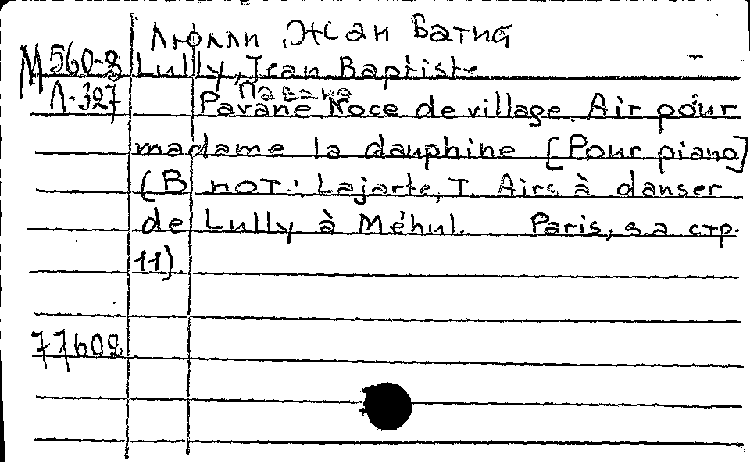 Люлли, Жан Батист
М 560-3 Lully, Jean Baptiste
Л-327 Павана
Pavane Noce de village. Air pour
madame la dauphine [Pour piano]
(В нот: Lajarte, T. Airs à danser
de Lully à Méhul. Paris, s a стр.
11).
77602